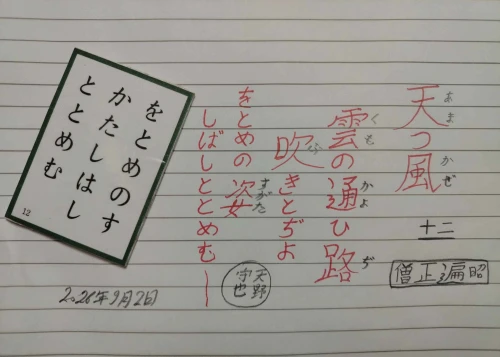 あま　かぜ
天つ風
十二
僧正遍昭
くも　かよ　ぢ
雲の通ひ路
ふ
吹きとぢよ
すがた
をとめの姿
しばしととめむー
天野
守也
2026年9月2日
をとめのす
かたしはし
ととめむ
12